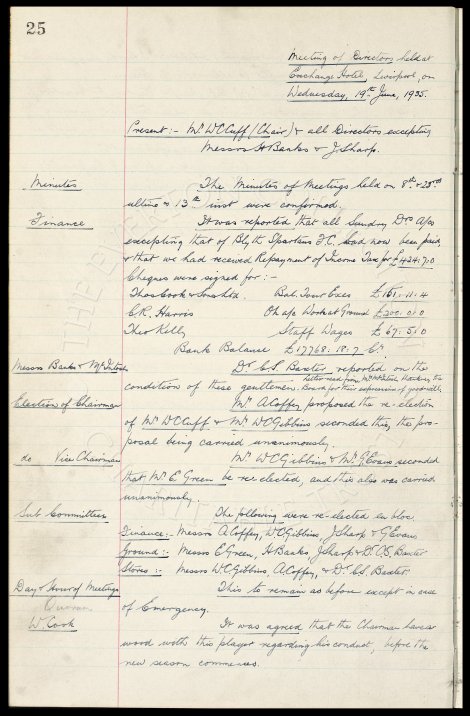 25
Meeting of Directors held at
Exchange Hotel, Liverpool, on
Wednesday, 19th June, 1935.
Present:- Mr. W C Cuff (Chair) & all Directors excepting
Messrs H Banks & J Sharp.
Minutes
The Minutes of Meetings held on 8th & 28th
ultimo & 13th inst were confirmed.
Finance
It was reported that all Sundry Dr. A/cs
excepting that of Blyth Spartans F.C. had now been paid
& that we had received Repayment of Income Tax for £434.7.0
Cheques were signed for:-
Thos Cook & Sons Ltd. Bal. Tour Exes £151.11.4
C.R. Harris On a/c Work at Ground £200.0.0
Theo Kelly Staff Wages £67.5.0
Bank Balance £17768.18.7 Cr.
Messrs Banks & McIntosh
Dr. C.S. Baxter reported on the
condition of these gentlemen. Letter read from Mr. McIntosh thanking the Board for their expressions of goodwill.
Election of Chairman
Mr. A Coffey proposed the re-election
of Mr. W C Cuff & Mr. W C Gibbins seconded this, the pro-
posal being carried unanimously.
do Vice Chairman
Mr. W C Gibbins & Mr. G Evans seconded
that Mr. E Green be re-elected, and this also was carried
unanimously.
Sub Committees
The following were re-elected en bloc.
Finance:- Messrs A Coffey, W C Gibbins, J Sharp & G Evans
Ground:- Messrs E Green, H Banks, J Sharp & Dr. C.S. Baxter
Stores:- Messrs W C Gibbins, A Coffey, & Dr. C.S. Baxter
Day & Hour of Meetings
This to remain as before except in case
Quorum
of Emergency.
W. Cook
It was agreed that the Chairman have a
word with this player regarding his conduct, before the
new season commences.